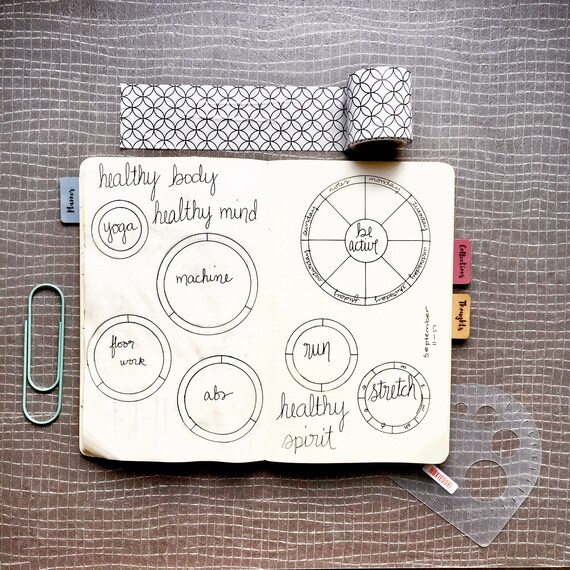 healthy body
healthy mind
yoga
machine
floor
work
abs
Planner
notes
monday
tuesday
wednesday
thursday
friday
saturday
sunday
be
active
Collections
Thoughts
September
11-17
run
stretch
healthy
spirit